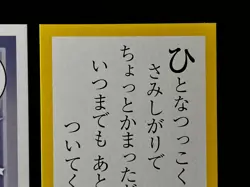 ひとなつっこく
さみしがりで
ちょっとかまっただ
いつまでも あと
ついてく